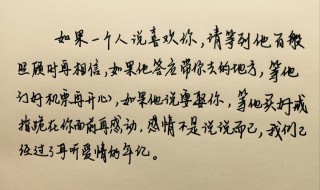 如果一个人说喜欢你,请等到他百般
照顾时再相信,如果他答应带你去的地方,等他
订好机票再开心,如果他说要娶你,等他买好戒
指跪在你面前再感动,感情不是说说而已,我们已
经过了耳听爱情的年纪。